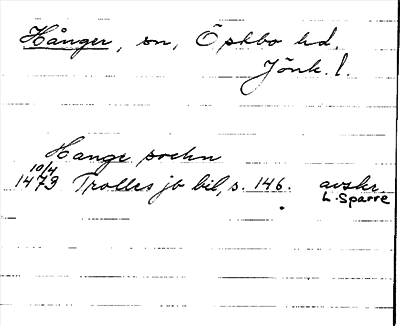 Hånger, sn, Östbo hd,
Jönk. l.
Hange sochn
10/4
1473 Trolles jb bil, s. 146. avskr.
L. Sparre